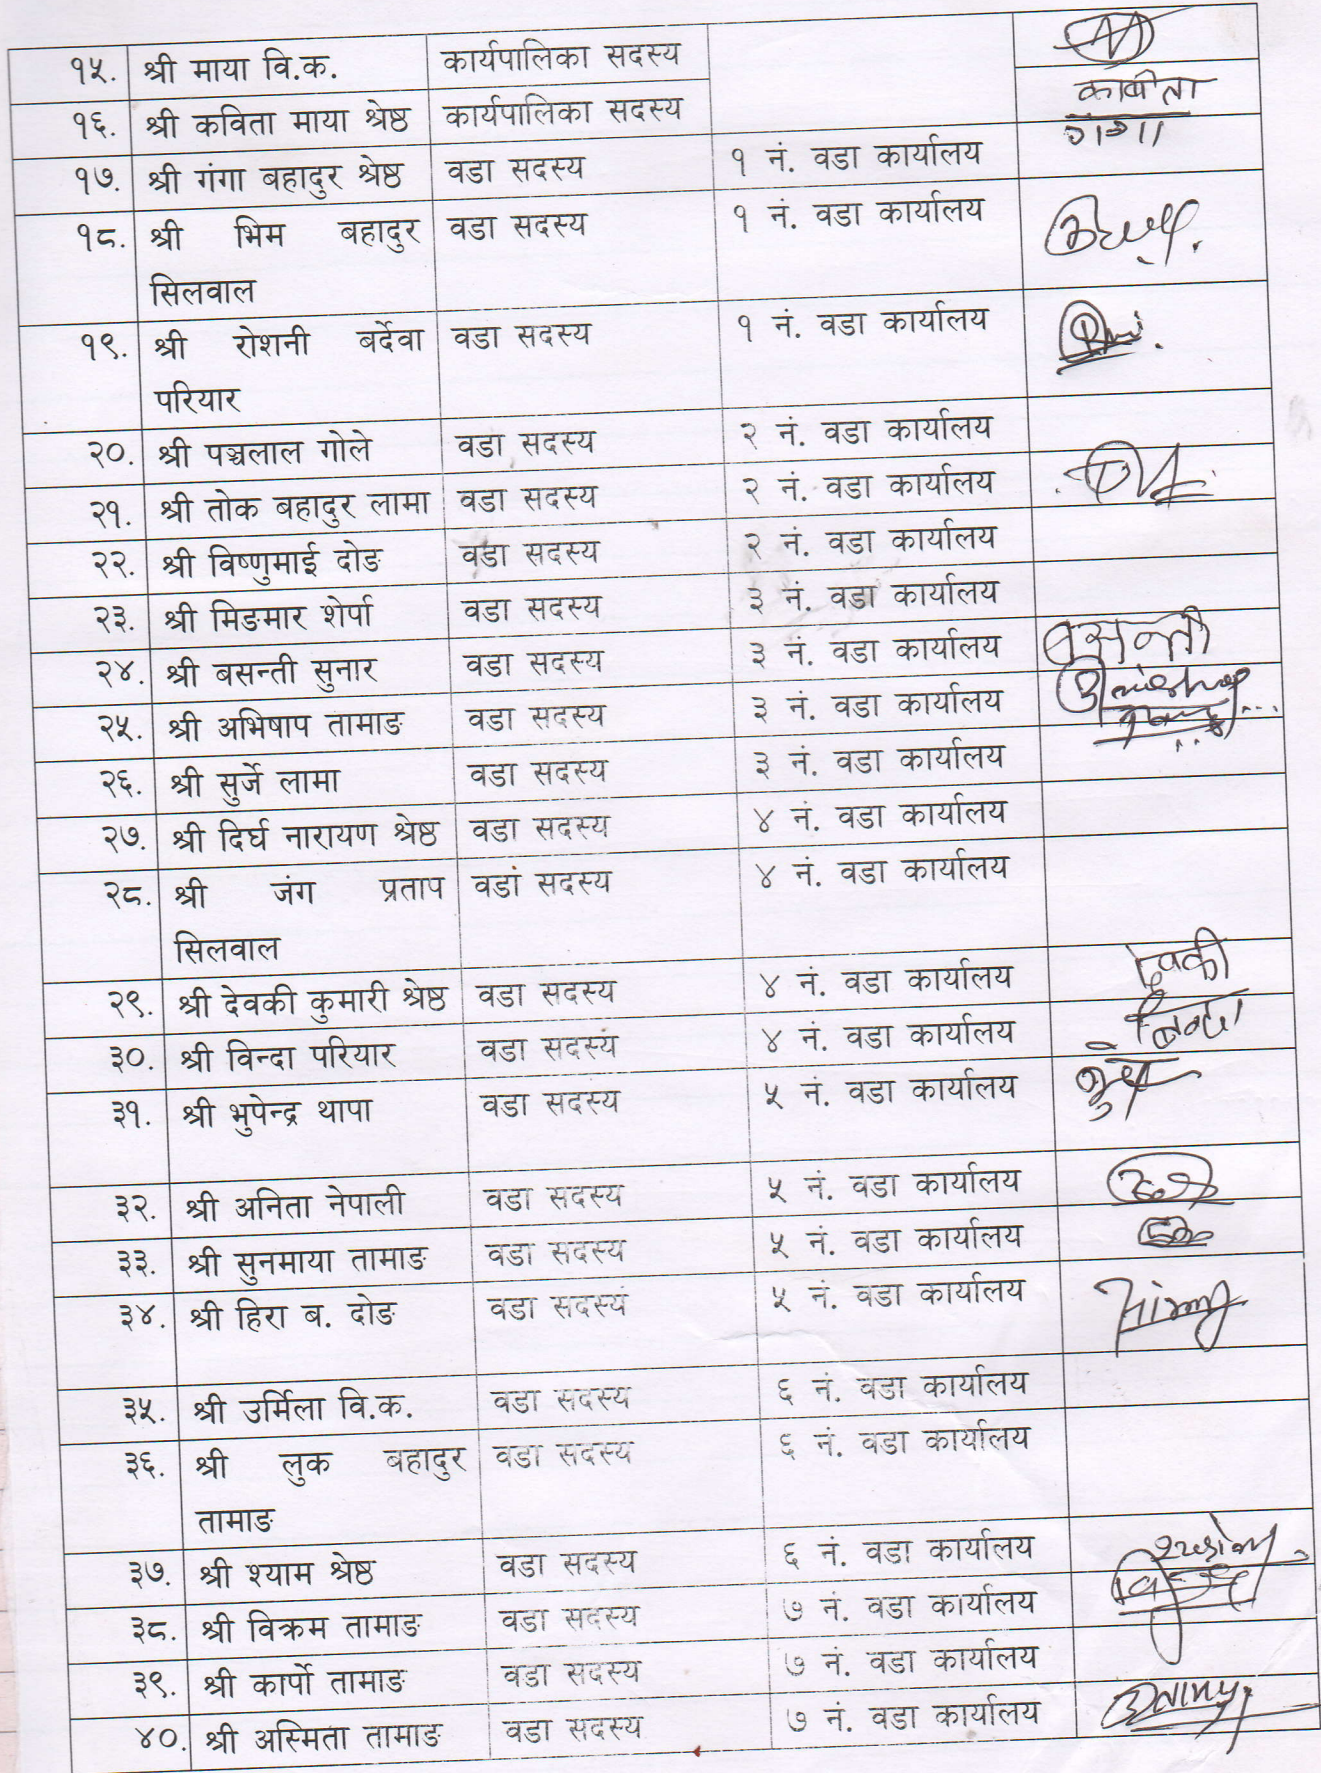 १५. श्री माया वि.क. कार्यपालिका सदस्य
१६. श्री कविता माया श्रेष्ठ कार्यपालिका सदस्य कविता
१७. श्री गंगा बहादुर श्रेष्ठ वडा सदस्य १ नं. वडा कार्यालय गंगा
१८. श्री भिम बहादुर वडा सदस्य १ नं. वडा कार्यालय
सिलवाल
१९. श्री रोशनी बर्देवा वडा सदस्य १ नं. वडा कार्यालय
परियार
२०. श्री पञ्चलाल गोले वडा सदस्य २ नं. वडा कार्यालय
२१. श्री तोक बहादुर लामा वडा सदस्य २ नं. वडा कार्यालय
२२. श्री विष्णुमाई दोङ वडा सदस्य २ नं. वडा कार्यालय
२३. श्री मिङमार शेर्पा वडा सदस्य ३ नं. वडा कार्यालय
२४. श्री बसन्ती सुनार वडा सदस्य ३ नं. वडा कार्यालय बसन्ती
२५. श्री अभिषाप तामाङ वडा सदस्य ३ नं. वडा कार्यालय
२६. श्री सुर्जे लामा वडा सदस्य ३ नं. वडा कार्यालय
२७. श्री दिर्घ नारायण श्रेष्ठ वडा सदस्य ४ नं. वडा कार्यालय
२८. श्री जंग प्रताप वडा सदस्य ४ नं. वडा कार्यालय
सिलवाल
२९. श्री देवकी कुमारी श्रेष्ठ वडा सदस्य ४ नं. वडा कार्यालय देवकी
३०. श्री विन्दा परियार वडा सदस्य ४ नं. वडा कार्यालय बिन्दा
३१. श्री भुपेन्द्र थापा वडा सदस्य ५ नं. वडा कार्यालय
३२. श्री अनिता नेपाली वडा सदस्य ५ नं. वडा कार्यालय
३३. श्री सुनमाया तामाङ वडा सदस्य ५ नं. वडा कार्यालय
३४. श्री हिरा ब. दोङ वडा सदस्य ५ नं. वडा कार्यालय
३५. श्री उर्मिला वि.क. वडा सदस्य ६ नं. वडा कार्यालय
३६. श्री लुक बहादुर वडा सदस्य ६ नं. वडा कार्यालय
तामाङ
३७. श्री श्याम श्रेष्ठ वडा सदस्य ६ नं. वडा कार्यालय
३८. श्री विक्रम तामाङ वडा सदस्य ७ नं. वडा कार्यालय
३९. श्री कार्पो तामाङ वडा सदस्य ७ नं. वडा कार्यालय
४०. श्री अस्मिता तामाङ वडा सदस्य ७ नं. वडा कार्यालय